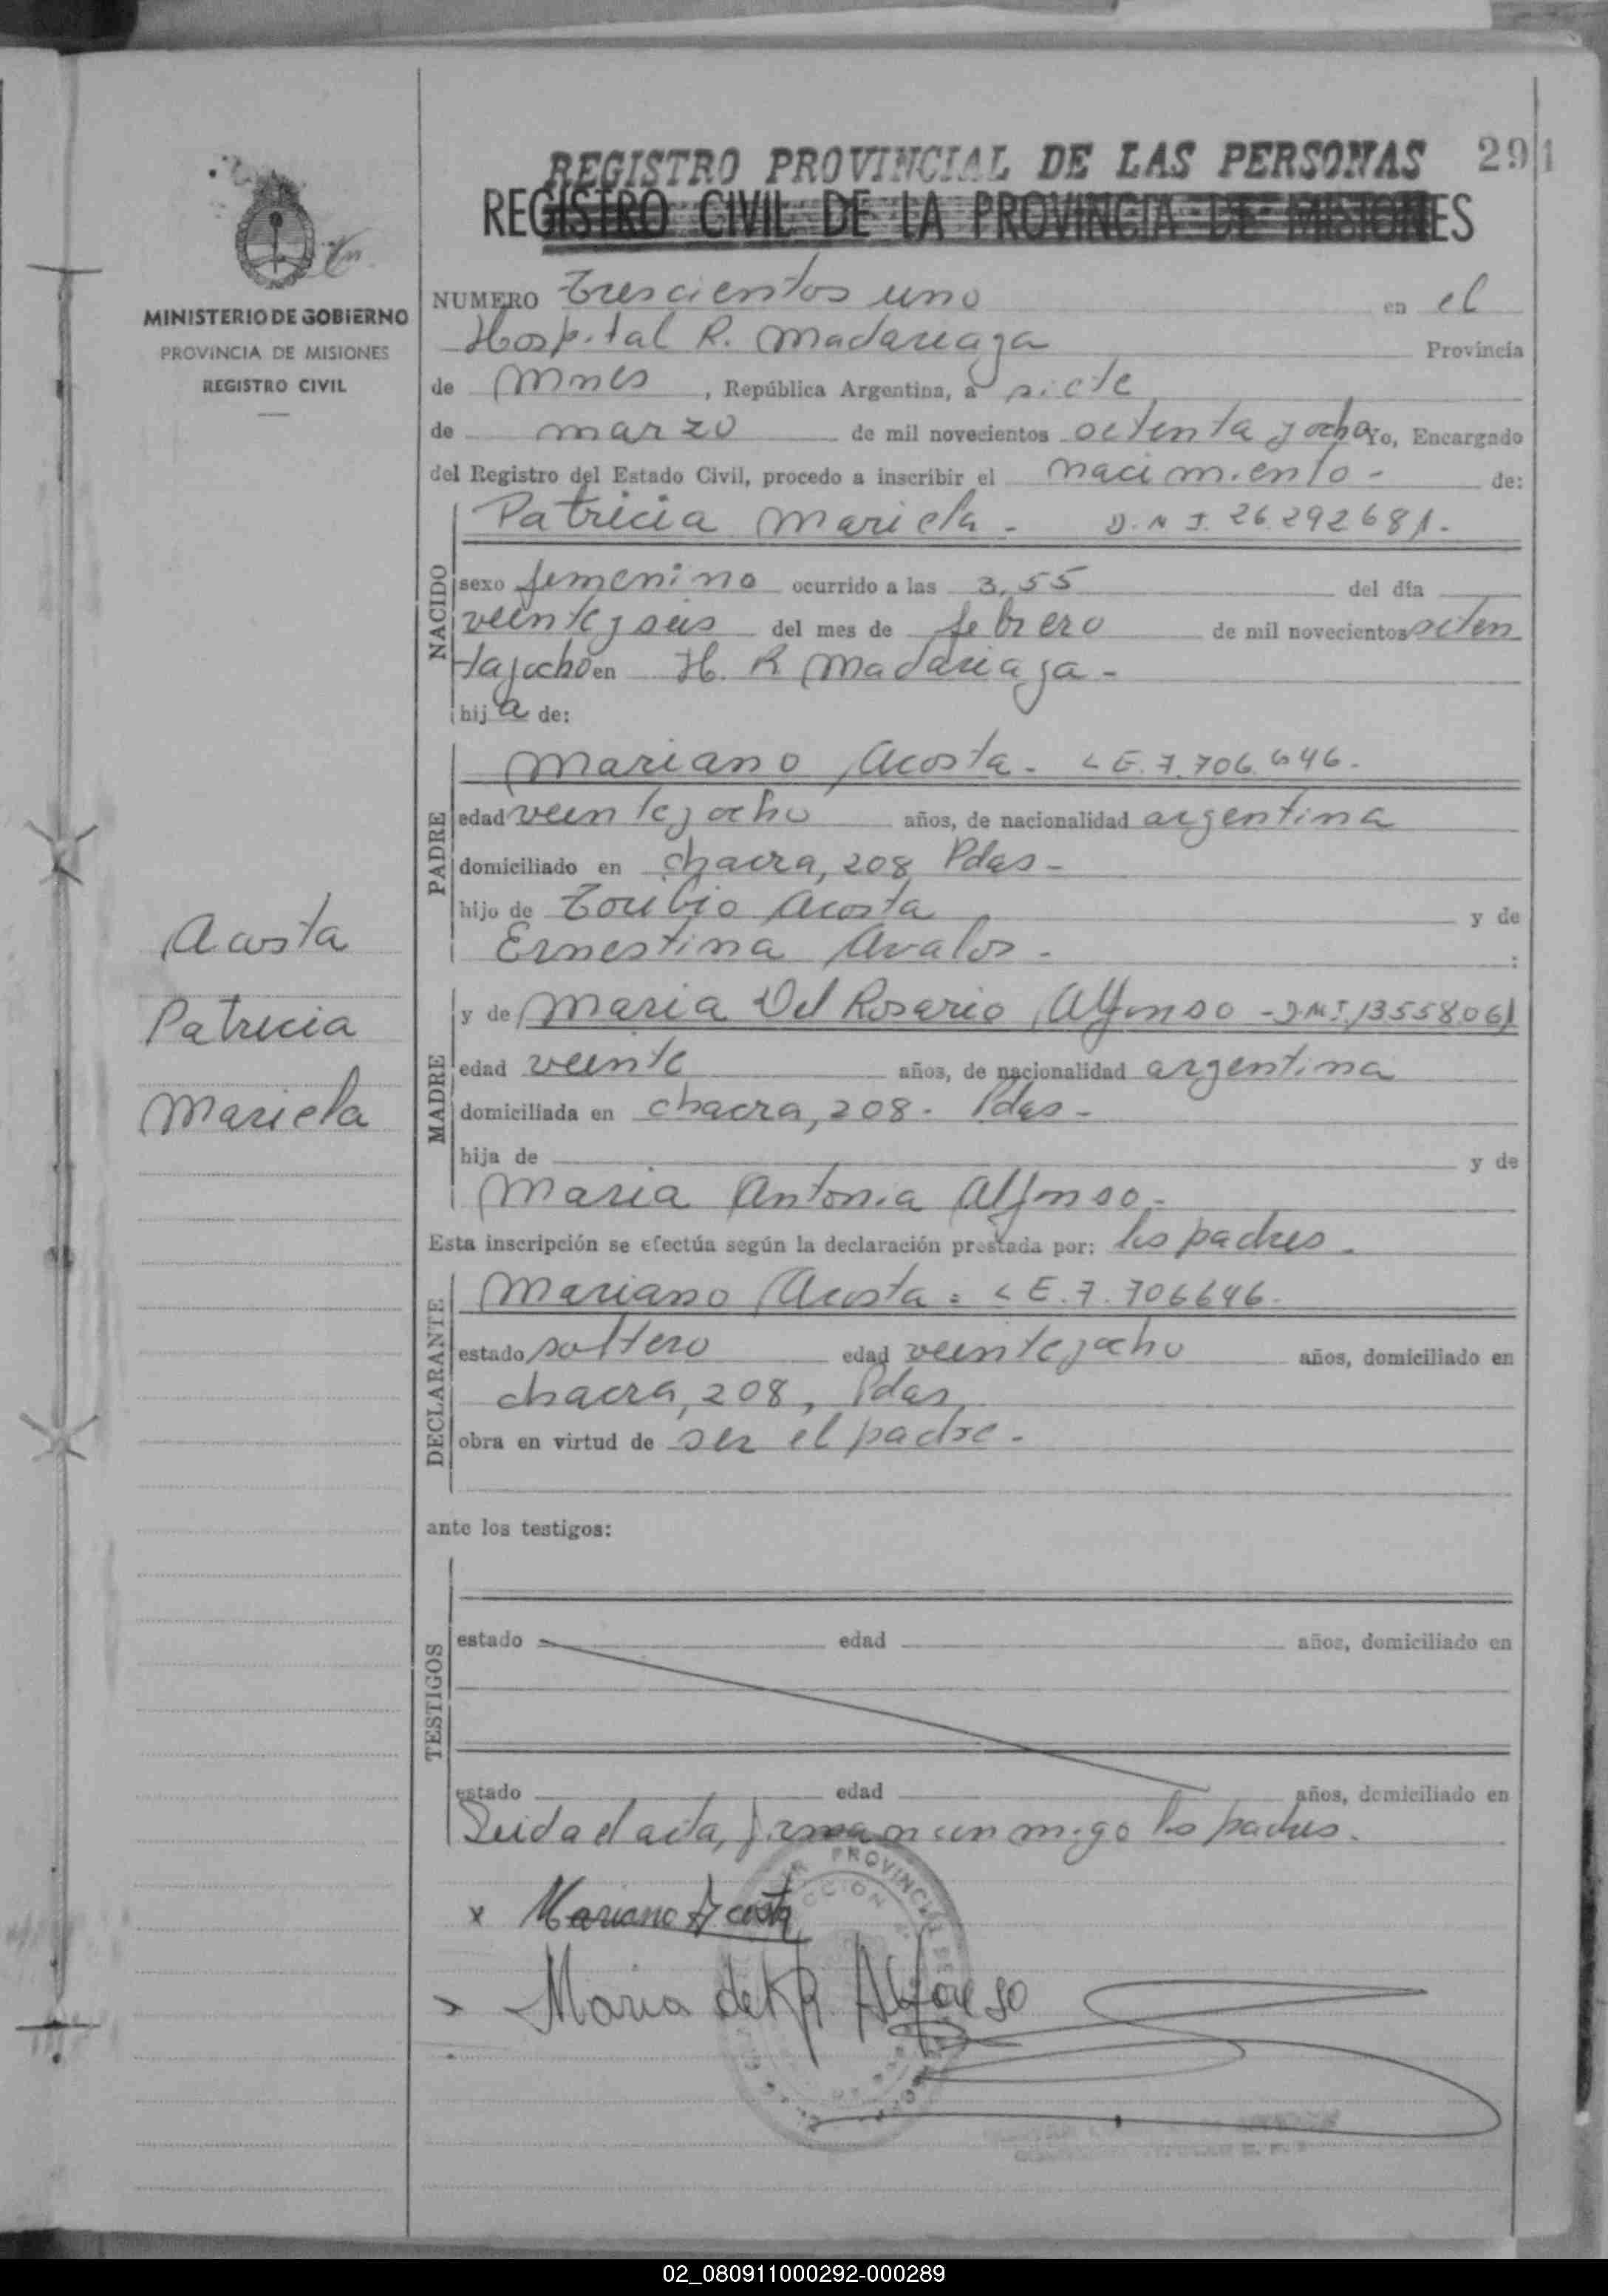 REGISTRO PROVINCIAL DE LAS PERSONAS 291
REGISTRO CIVIL DE LA PROVINCIA DE MISIONES
MINISTERIO DE GOBIERNO
PROVINCIA DE MISIONES
REGISTRO CIVIL
NUMERO Trescientos uno en el
Hospital R. Madariaga Provincia
de Mnes, República Argentina, a siete
de marzo de mil novecientos octenta y ocho Yo, Encargado
del Registro del Estado Civil, procedo a inscribir el nacimiento - de:
NACIDO
Patricia Mariela - D.N.I. 26.292681.
sexo femenino ocurrido a las 3,55 del día
veinte y seis del mes de febrero de mil novecientos octen
ta y ocho en H. R Madariaga -
hija de:
PADRE
Mariano Acosta - LE. 7.706.646.
edad veinte y ocho años, de nacionalidad argentina
domiciliado en chacra, 208 Pdas -
hijo de Toribio Acosta y de
Ernestina Avalos - :
MADRE
y de Maria Del Rosario Alfonso - DNI. 13558061
edad veinte años, de nacionalidad argentina
domiciliada en chacra, 208 - Pdas -
hija de y de
Maria Antonia Alfonso -
Acosta
Patricia
Mariela
Esta inscripción se efectúa según la declaración prestada por: los padres.
DECLARANTE
Mariano Acosta = LE. 7. 706646.
estado soltero edad veinte y ocho años, domiciliado en
chacra, 208, Pdas,
obra en virtud de ser el padre -
ante los testigos:
TESTIGOS
estado edad años, domiciliado en
estado edad años, domiciliado en
Leida el acta, firman conmigo los padres.
x Mariano Acosta
x Maria del R. Alfonso
02_080911000292-000289